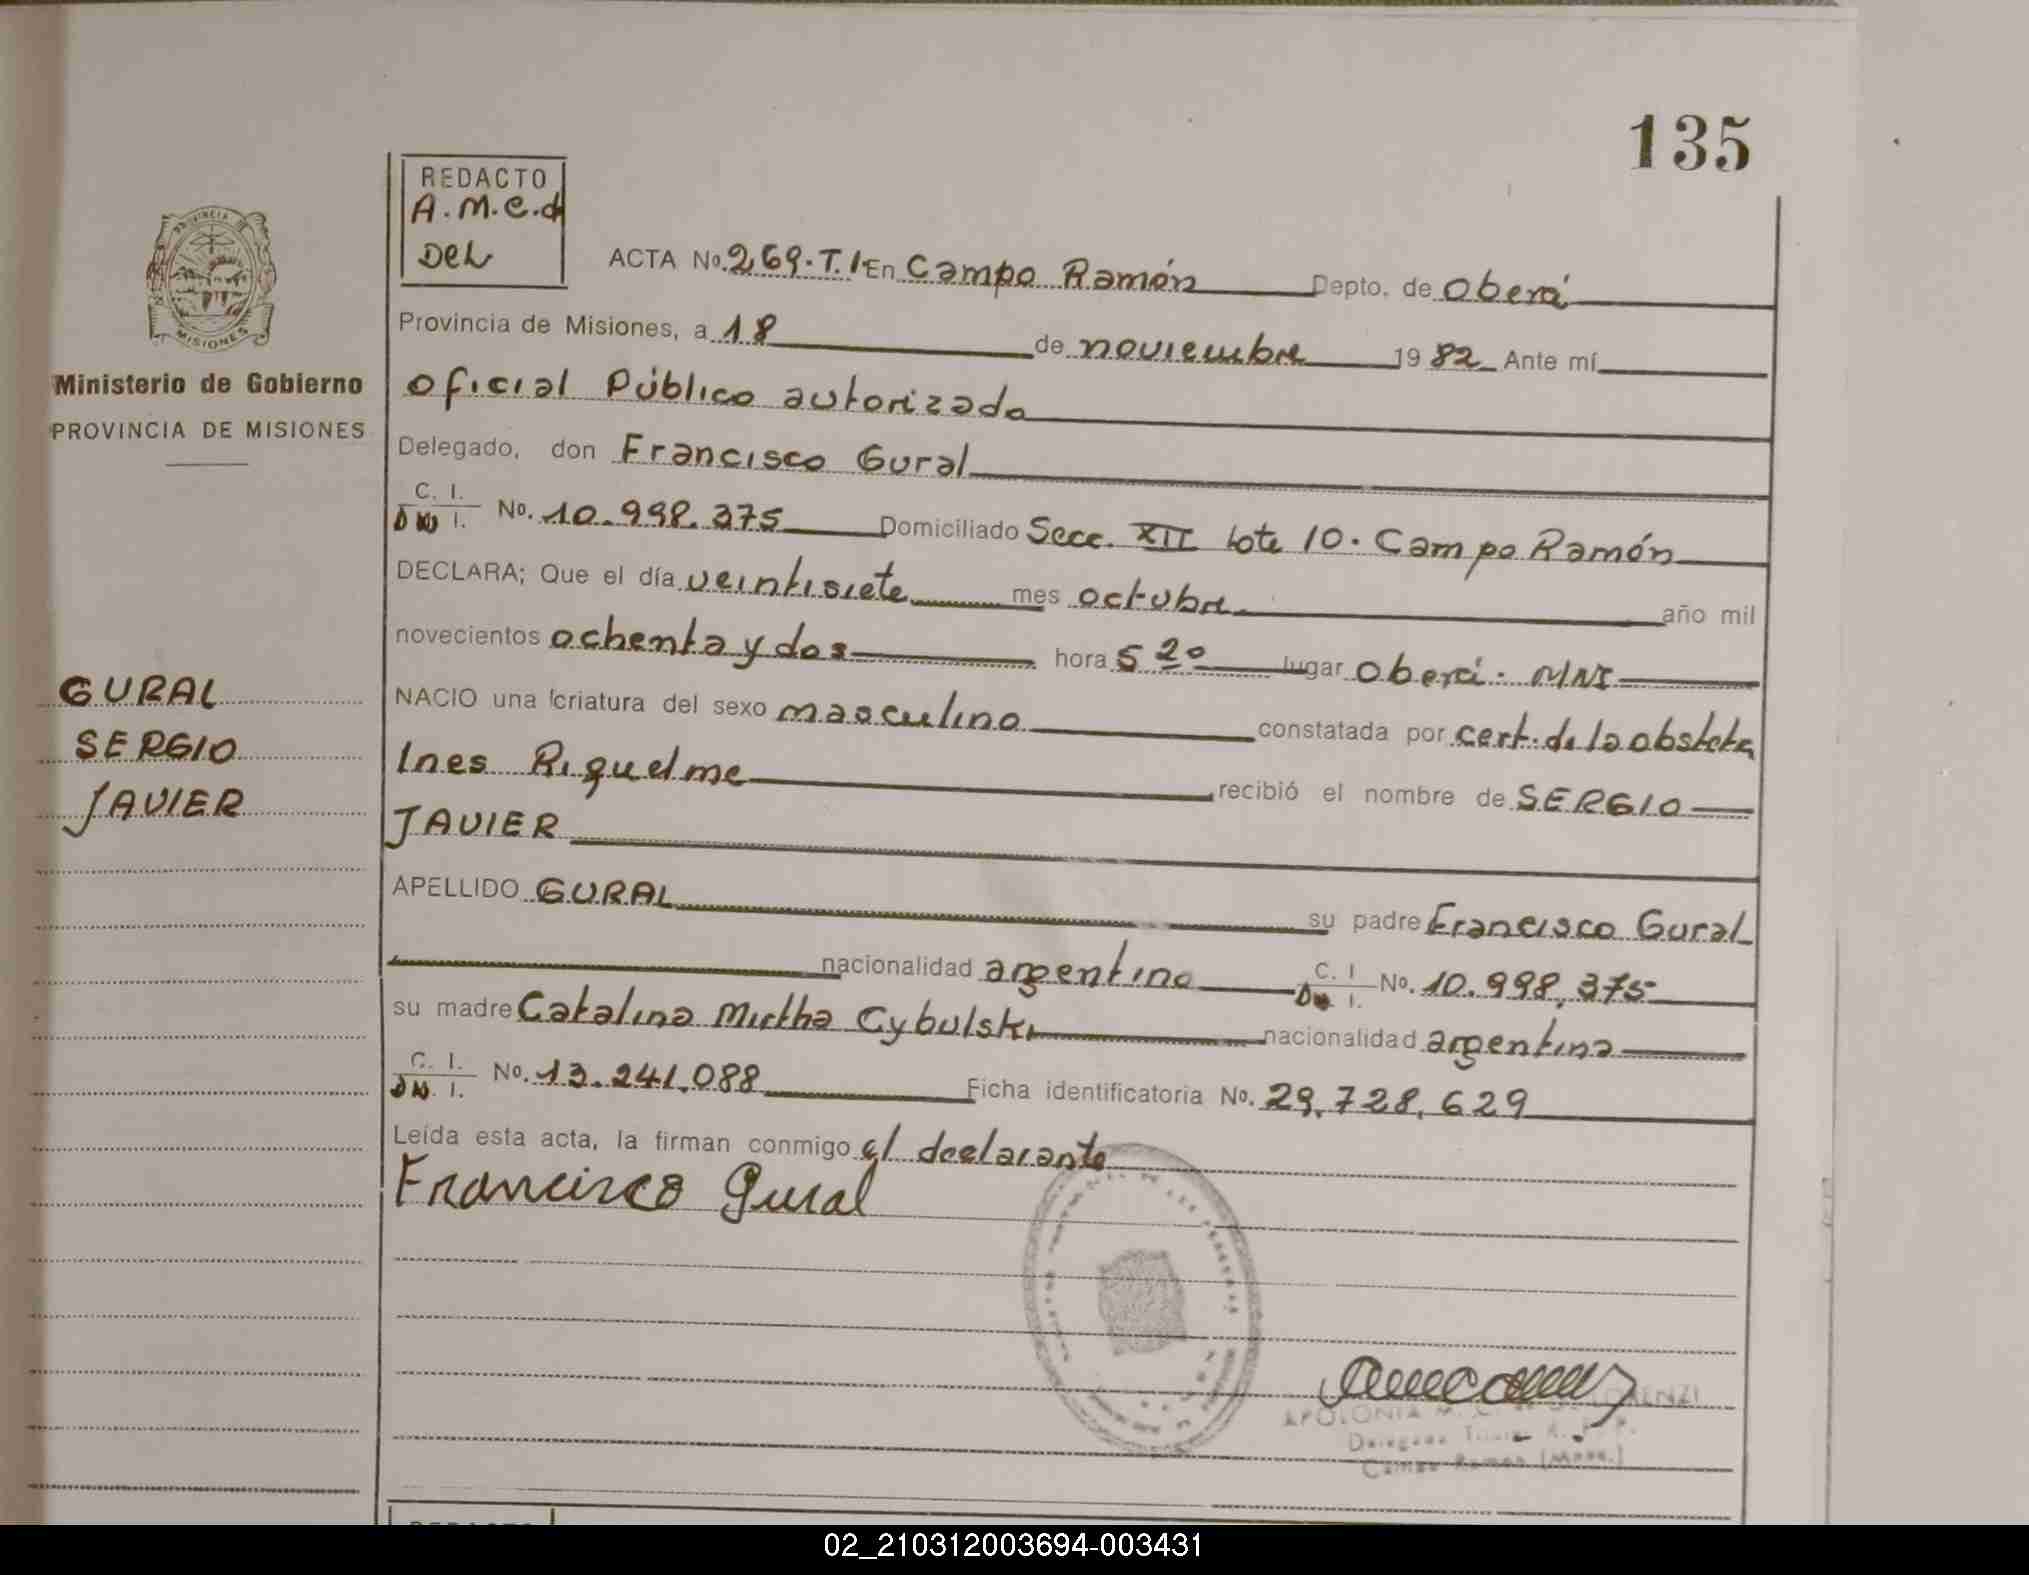 135
REDACTO
A.M.C.d
DEL
PROVINCIA DE
MISIONES
Ministerio de Gobierno
PROVINCIA DE MISIONES
GURAL
SERGIO
JAVIER
ACTA No. 269.T.I En Campo Ramón Depto. de Oberá
Provincia de Misiones, a 18 de noviembre 1982 Ante mí
Oficial Público autorizado
Delegado, don Francisco Gural
C. I.
D N I. No. 10.998.375 Domiciliado Secc. XII lote 10. Campo Ramón
DECLARA; Que el día veintisiete mes octubre año mil
novecientos ochenta y dos hora 5 20 lugar Oberá. MNI
NACIO una criatura del sexo masculino constatada por cert. de la obstetra
Ines Riquelme recibió el nombre de SERGIO
JAVIER
APELLIDO GURAL su padre Francisco Gural
nacionalidad argentino C. I
D N I. No. 10.998.375
su madre Catalina Mirtha Cybulski nacionalidad argentina
C. I.
D N. I. No. 13.241.088 Ficha identificatoria No. 29.728.629
Leída esta acta, la firman conmigo el declarante
Francisco Gural
APOLONIA M. C. LORENZI
Campo Ramon (Mnes.)
REDACTO
02_210312003694-003431